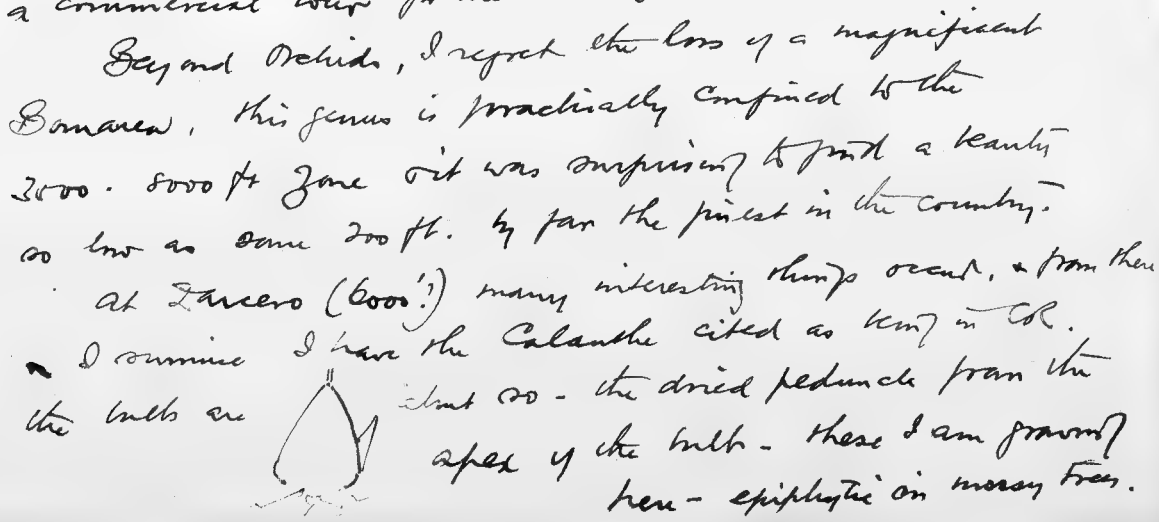 a commercial
Beyond Orchids, I regret the loss of a magnificent
Bomarea, this genus is practically confined to the
3500 - 8000 ft zone & it was surprising to find a beauty
so low as some 200 ft. by far the finest in the country.
At Zarcero (6000'!) many interesting things occur, & from there
I surmise I have the Calanthe cited as being in CR.
the bulbs are about so - the dried peduncle from the
apex of the bulb - these I am growing
here - epiphytic on mossy trees.